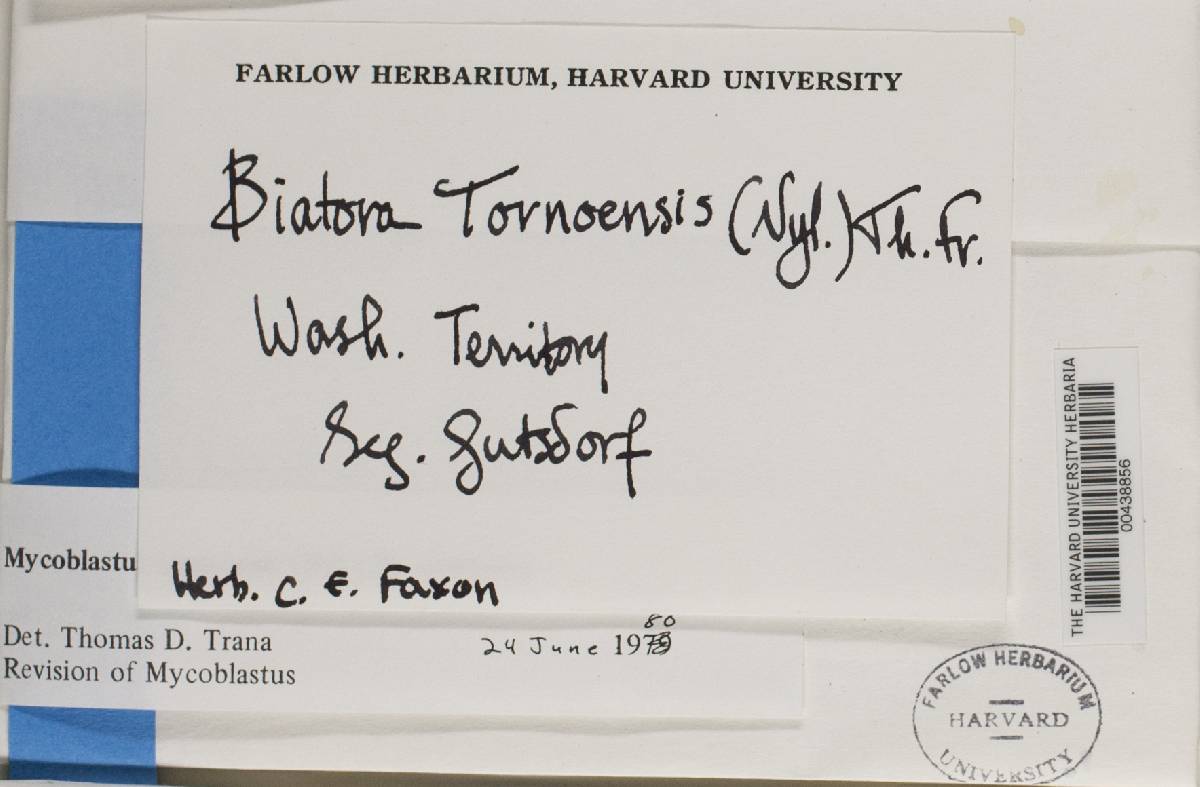 FARLOW HERBARIUM, HARVARD UNIVERSITY
Biatora Tornoensis (Nyl.) Th. Fr.
Wash. Territory
Leg. Gutsdorf
Herb. C. E. Faxon
Mycoblastu
Det. Thomas D. Trana
24 June 1979 80
Revision of Mycoblastus
THE HARVARD UNIVERSITY HERBARIA
00438856
FARLOW HERBARIUM
HARVARD
UNIVERSITY